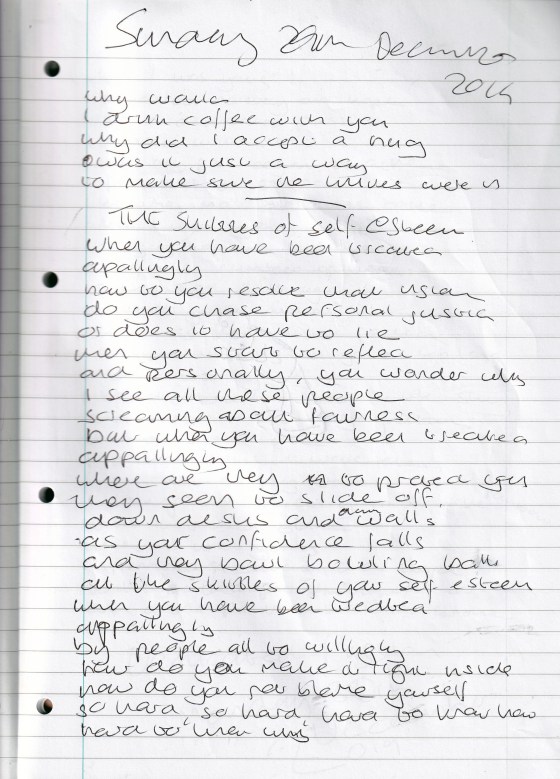 Sunday 29th December
2014
why would
I drink coffee with you
why did I accept a hug
was it just a way
to make sure the knives were in
THE Skittles of self Esteem
when you have been treated
appallingly
how do you resolve that
do you chase personal justice
or does it have to lie
when you start to reflect
and personally, you wonder why
I see all these people
screaming about fairness
but when you have been treated
appallingly
where are they to protect you
they seem to slide off,
down desks and any walls
as your confidence falls
and they bowl bowling balls
at the skittles of your self esteem
when you have been treated
appallingly
by people all to willingly
how do you make it right inside
how do you not blame yourself
so hard, so hard, hard to know how
hard to know why